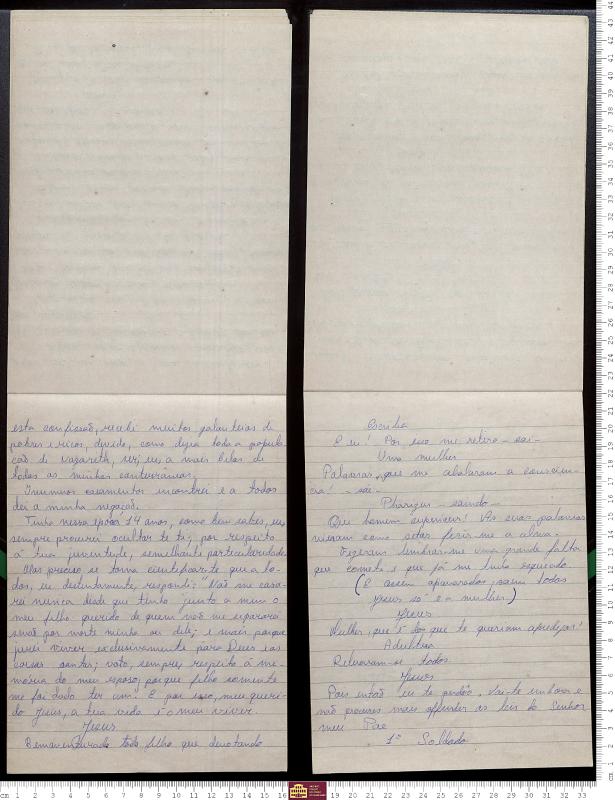 esta confissão, recebi muitos galanteios de
pobres e ricos, devido, como dizia toda a popula-
ção de Nazareth, ser, eu, a mais bela de
todas as minhas conterrâneas.
Inumeros casamentos encontrei e a todos
dei a minha negação.
Tinha nessa época 14 anos, como bem sabes, eu
sempre procurei ocultar te tu, por respeito
á tua juventude, semelhante particularidade.
Mas preciso se torna cientificar-te que a to-
dos, eu, distintamente, respondi: "Não me casa-
rei nunca desde que tenho junto a mim o
meu filho querido de quem não me separarei
senão por morte minha ou dele; e mais, porque
jurei viver exclusivamente para Deus e as
coisas santas; voto, sempre, respeito á me-
mória do meu esposo, porque filho somente
me foi dado ter um. E por isso, meu queri-
do Jesus, a tua vida é o meu viver.
Jesus
Bemaventurado todo filho que devotando
Escriba
E eu! Por isso me retiro - sai -
Uma mulher
Palavras que me abalaram a conscien-
cia! - sai -
Phariseu - saindo -
Que homem superior! As suas palavras
vieram como setas ferir-me a alma.
Fizeram lembrar-me uma grande falta
que cometi e que já me tinha esquecido.
(E assim apavorados, saem todos
Jesus só e a mulher)
Jesus
Mulher, que é dos que te queriam apedrejar?
Adultera
Retiraram-se todos
Jesus
Pois então eu te perdôo. Vai-te embora e
não procures mais offender as leis do Senhor
meu Pae
1º Soldado